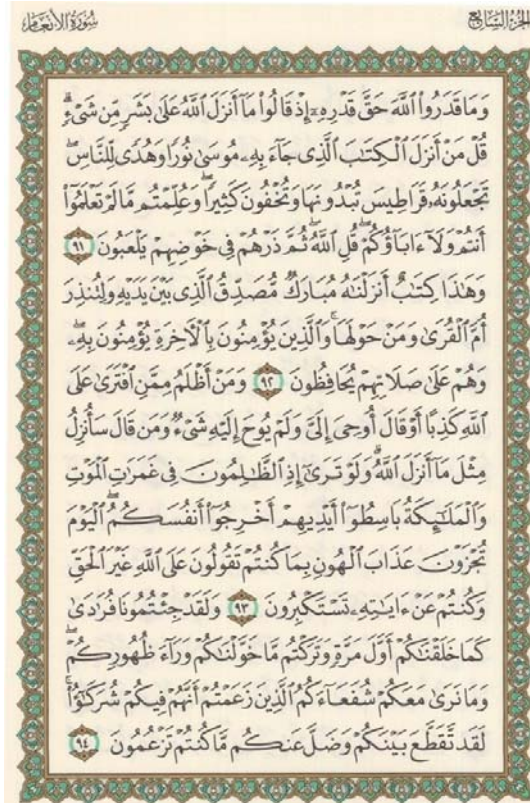 الجزء السابع
سورة الأنعام
وَمَا قَدَرُوا۟ ٱللَّهَ حَقَّ قَدْرِهِۦٓ إِذْ قَالُوا۟ مَآ أَنزَلَ ٱللَّهُ عَلَىٰ بَشَرٍ مِّن شَىْءٍۗ
قُلْ مَنْ أَنزَلَ ٱلْكِتَـٰبَ ٱلَّذِى جَآءَ بِهِۦ مُوسَىٰ نُورًا وَهُدًى لِّلنَّاسِۖ
تَجْعَلُونَهُۥ قَرَاطِيسَ تُبْدُونَهَا وَتُخْفُونَ كَثِيرًاۖ وَعُلِّمْتُم مَّا لَمْ تَعْلَمُوٓا۟
أَنتُمْ وَلَآ ءَابَآؤُكُمْۖ قُلِ ٱللَّهُۖ ثُمَّ ذَرْهُمْ فِى خَوْضِهِمْ يَلْعَبُونَ ٩١
وَهَـٰذَا كِتَـٰبٌ أَنزَلْنَـٰهُ مُبَارَكٌ مُّصَدِّقُ ٱلَّذِى بَيْنَ يَدَيْهِ وَلِتُنذِرَ
أُمَّ ٱلْقُرَىٰ وَمَنْ حَوْلَهَاۚ وَٱلَّذِينَ يُؤْمِنُونَ بِٱلْـَٔاخِرَةِ يُؤْمِنُونَ بِهِۦۖ
وَهُمْ عَلَىٰ صَلَاتِهِمْ يُحَافِظُونَ ٩٢ وَمَنْ أَظْلَمُ مِمَّنِ ٱفْتَرَىٰ عَلَى
ٱللَّهِ كَذِبًا أَوْ قَالَ أُوحِىَ إِلَىَّ وَلَمْ يُوحَ إِلَيْهِ شَىْءٌ وَمَن قَالَ سَأُنزِلُ
مِثْلَ مَآ أَنزَلَ ٱللَّهُۗ وَلَوْ تَرَىٰٓ إِذِ ٱلظَّـٰلِمُونَ فِى غَمَرَٰتِ ٱلْمَوْتِ
وَٱلْمَلَـٰٓئِكَةُ بَاسِطُوٓا۟ أَيْدِيهِمْ أَخْرِجُوٓا۟ أَنفُسَكُمُۖ ٱلْيَوْمَ
تُجْزَوْنَ عَذَابَ ٱلْهُونِ بِمَا كُنتُمْ تَقُولُونَ عَلَى ٱللَّهِ غَيْرَ ٱلْحَقِّ
وَكُنتُمْ عَنْ ءَايَـٰتِهِۦ تَسْتَكْبِرُونَ ٩٣ وَلَقَدْ جِئْتُمُونَا فُرَٰدَىٰ
كَمَا خَلَقْنَـٰكُمْ أَوَّلَ مَرَّةٍ وَتَرَكْتُم مَّا خَوَّلْنَـٰكُمْ وَرَآءَ ظُهُورِكُمْۖ
وَمَا نَرَىٰ مَعَكُمْ شُفَعَآءَكُمُ ٱلَّذِينَ زَعَمْتُمْ أَنَّهُمْ فِيكُمْ شُرَكَـٰٓؤُا۟ۚ
لَقَد تَّقَطَّعَ بَيْنَكُمْ وَضَلَّ عَنكُم مَّا كُنتُمْ تَزْعُمُونَ ٩٤